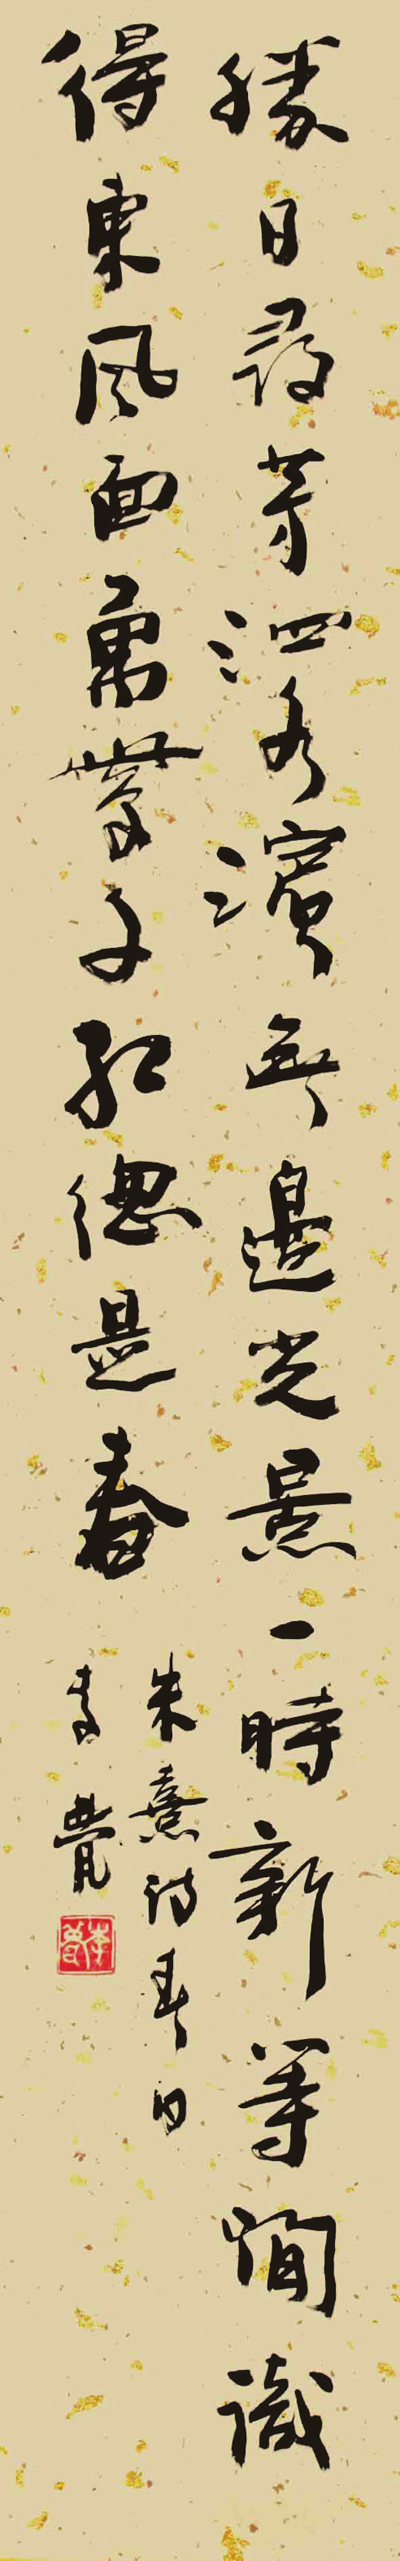 勝日尋芳泗水濱無邊光景一時新等閒識
得東風面萬紫千紅總是春
朱熹詩春日
李